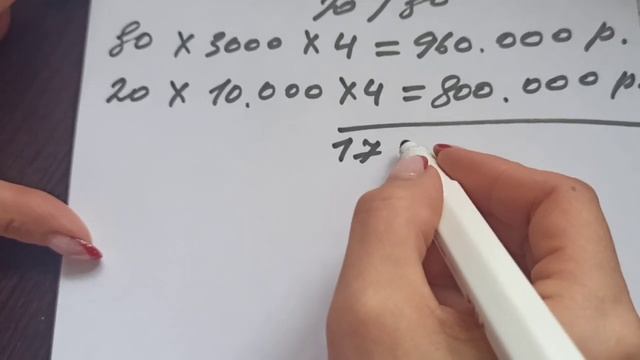 80 × 3000 × 4 = 960.000 р.
20 × 10.000 × 4 = 800.000 р.
17